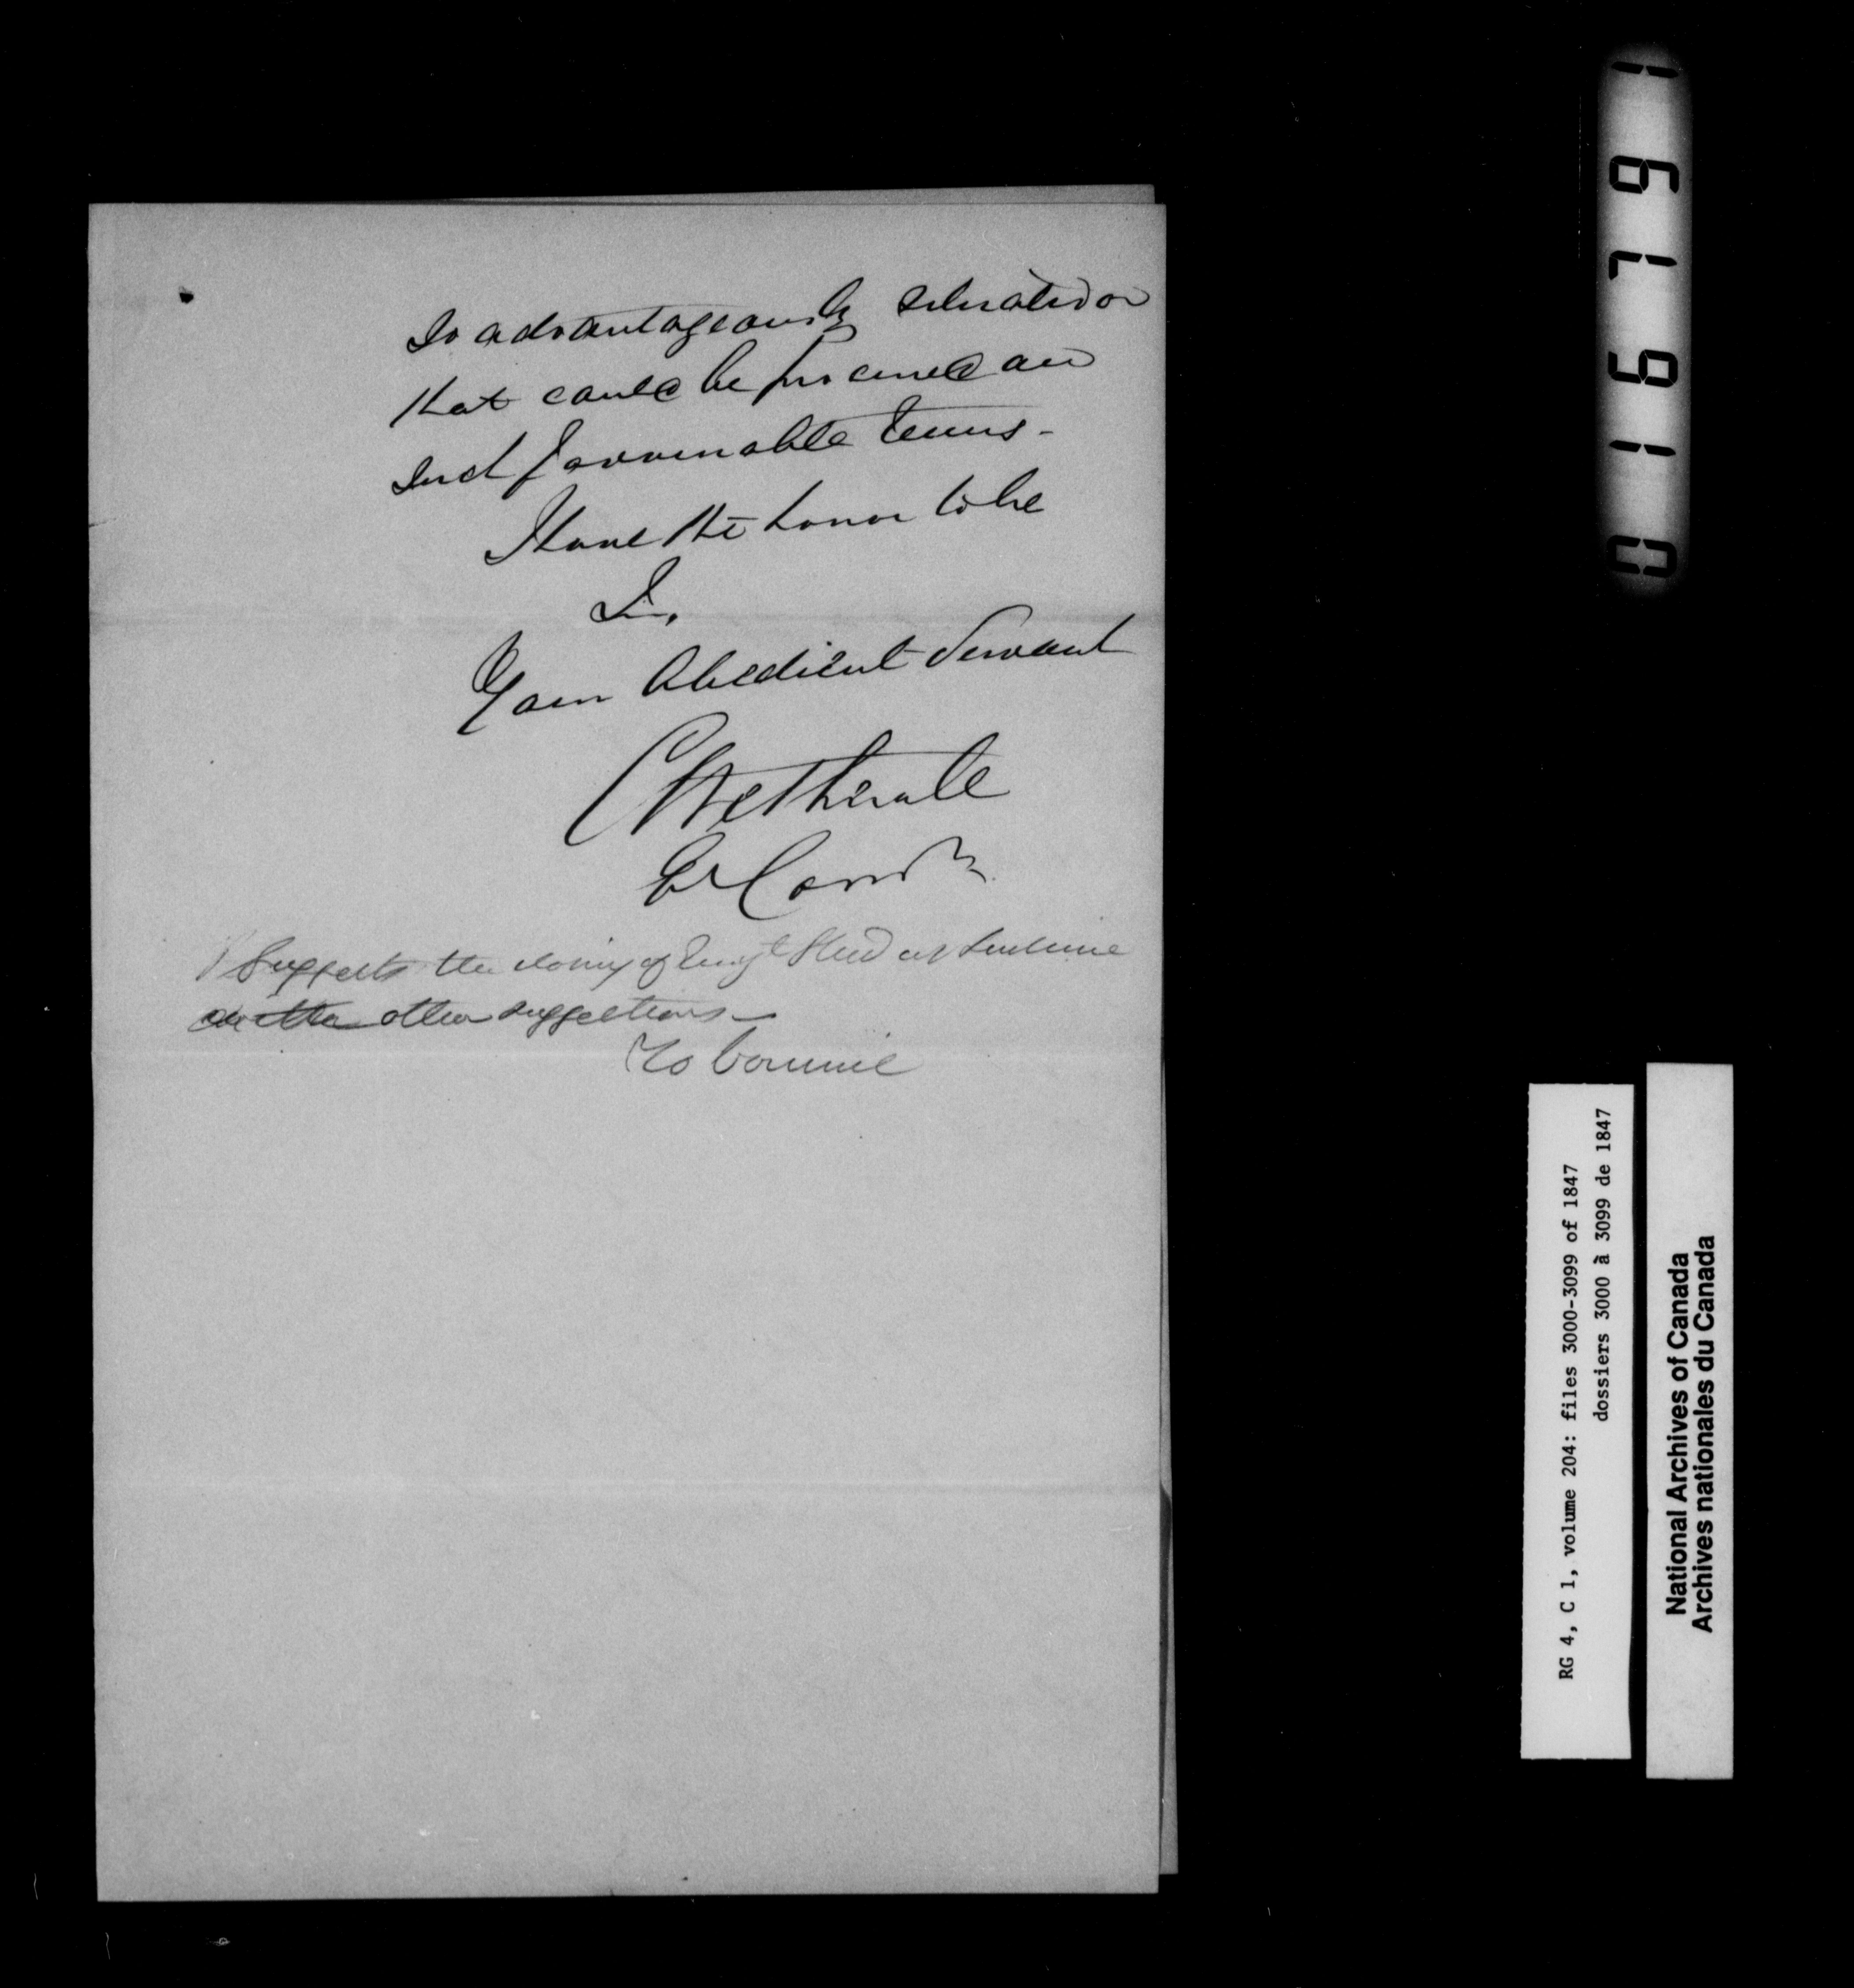 So advantageously situated or
that could be procured on
such favourable terms -
I have the honor to be
Sir,
Your Obedient Servant
C Wetherall
Suggests the closing of Emigt Shed at Lachine
other suggestions -
To Counc
016791
RG 4, C 1, volume 204: files 3000-3099 of 1847
dossiers 3000 à 3099 de 1847
National Archives of Canada
Archives nationales du Canada